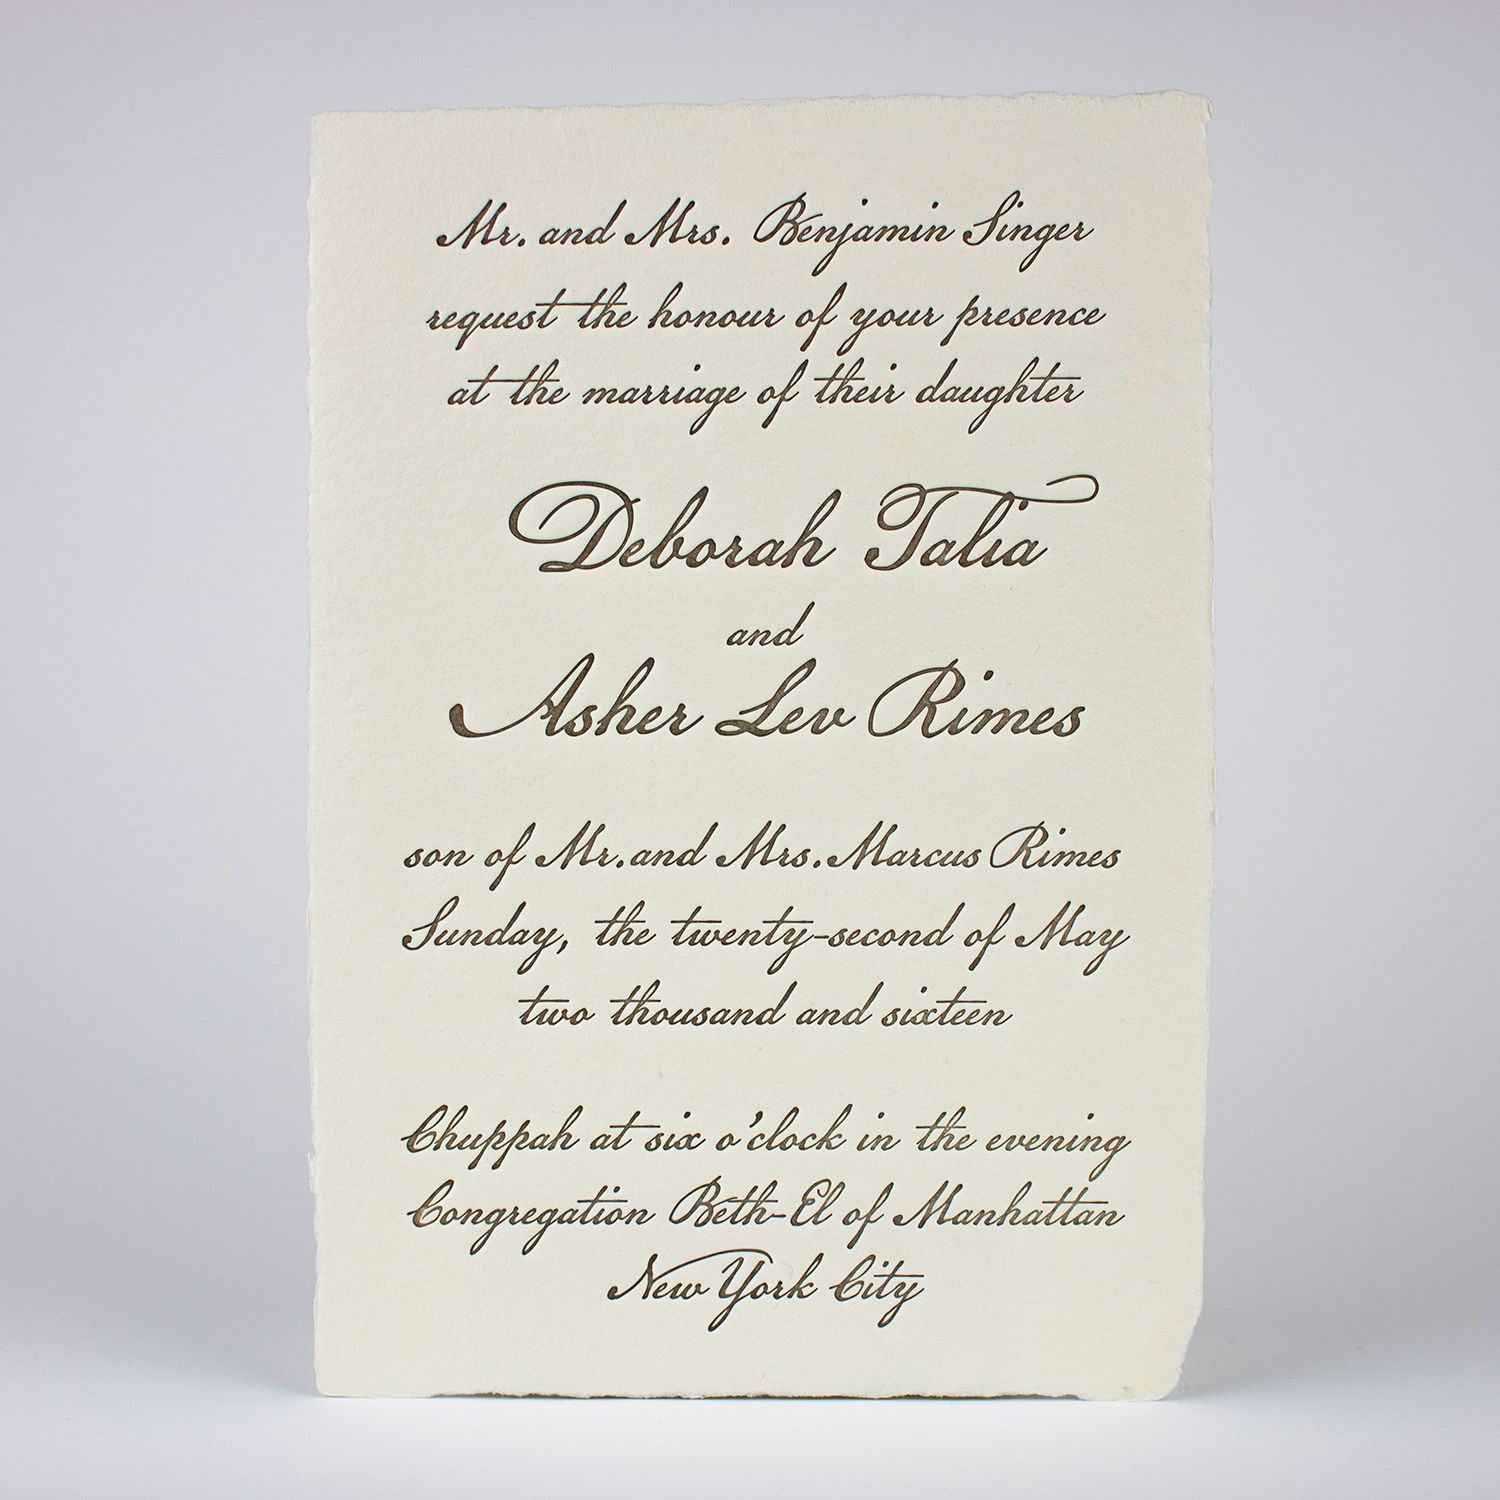 Mr. and Mrs. Benjamin Singer
request the honour of your presence
at the marriage of their daughter
Deborah Talia
and
Asher Lev Rimes
son of Mr. and Mrs. Marcus Rimes
Sunday, the twenty-second of May
two thousand and sixteen
Chuppah at six o'clock in the evening
Congregation Beth-El of Manhattan
New York City